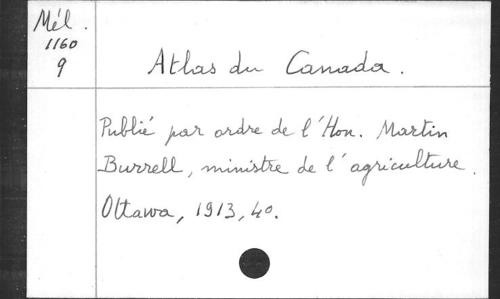 Mél.
1160
9
Atlas du Canada.
Publié par ordre de l'Hon. Martin
Burrell, ministre de l'agriculture.
Ottawa, 1913, 4o.